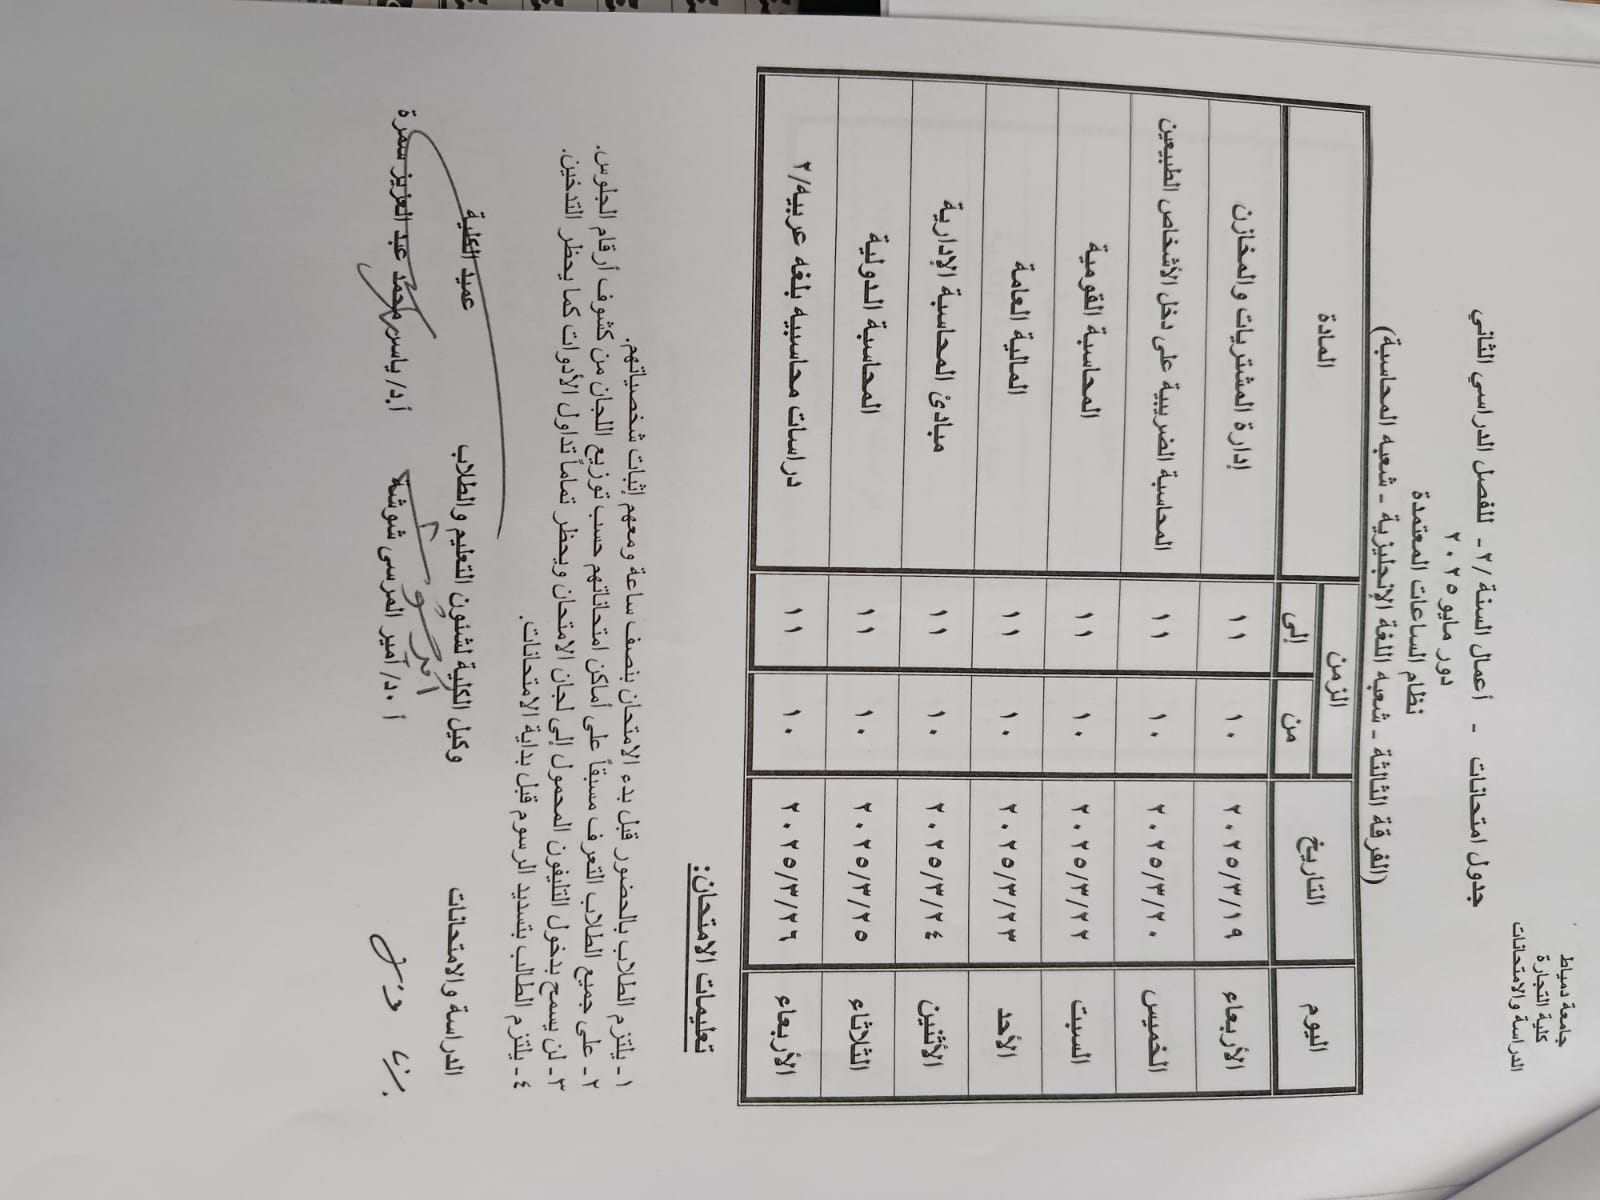 جامعة دمياط
كلية التجارة
الدراسة والامتحانات
جدول امتحانات - أعمال السنة /٢ - للفصل الدراسي الثاني
دور مايو ٢٠٢٥
نظام الساعات المعتمدة
(الفرقة الثالثة - شعبه اللغة الإنجليزية - شعبه المحاسبة)
اليوم التاريخ الزمن المادة
من إلى
الأربعاء ٢٠٢٥/٣/١٩ ١٠ ١١ إدارة المشتريات والمخازن
الخميس ٢٠٢٥/٣/٢٠ ١٠ ١١ المحاسبة الضريبية على دخل الأشخاص الطبيعين
السبت ٢٠٢٥/٣/٢٢ ١٠ ١١ المحاسبة القومية
الأحد ٢٠٢٥/٣/٢٣ ١٠ ١١ المالية العامة
الأثنين ٢٠٢٥/٣/٢٤ ١٠ ١١ مبادئ المحاسبة الإدارية
الثلاثاء ٢٠٢٥/٣/٢٥ ١٠ ١١ المحاسبة الدولية
الأربعاء ٢٠٢٥/٣/٢٦ ١٠ ١١ دراسات محاسبيه بلغه عربيه/٢
تعليمات الامتحان:
١ - يلتزم الطلاب بالحضور قبل بدء الامتحان بنصف ساعة ومعهم إثبات شخصياتهم.
٢ - على جميع الطلاب التعرف مسبقاً على أماكن امتحاناتهم حسب توزيع اللجان من كشوف أرقام الجلوس.
٣ - لن يسمح بدخول التليفون المحمول إلى لجان الامتحان ويحظر تماماً تداول الأدوات كما يحظر التدخين.
٤ - يلتزم الطالب بتسديد الرسوم قبل بداية الامتحانات.
الدراسة والامتحانات وكيل الكلية لشئون التعليم والطلاب عميد الكلية
أ.د/ أمير المرسى شوشة أ.د/ ياسر محمد عبد العزيز سمرة